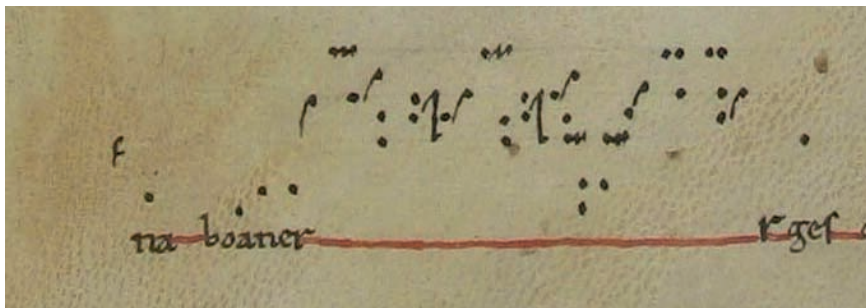 f
na boaner rgeſ